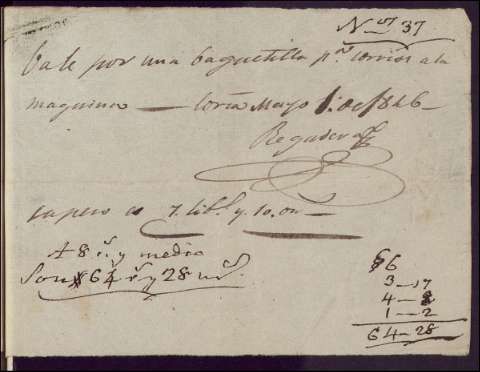 N.º 37
Vale por una baguetilla p.ª a la
maquina — Mayo 1.º de 1846—
Regadera
su peso es 7. lib.s y. 10. on.s—
A 8 r.s y medio
Son 64 r.s y 28 m.s
56
3—17
4—8
1—2
64—28